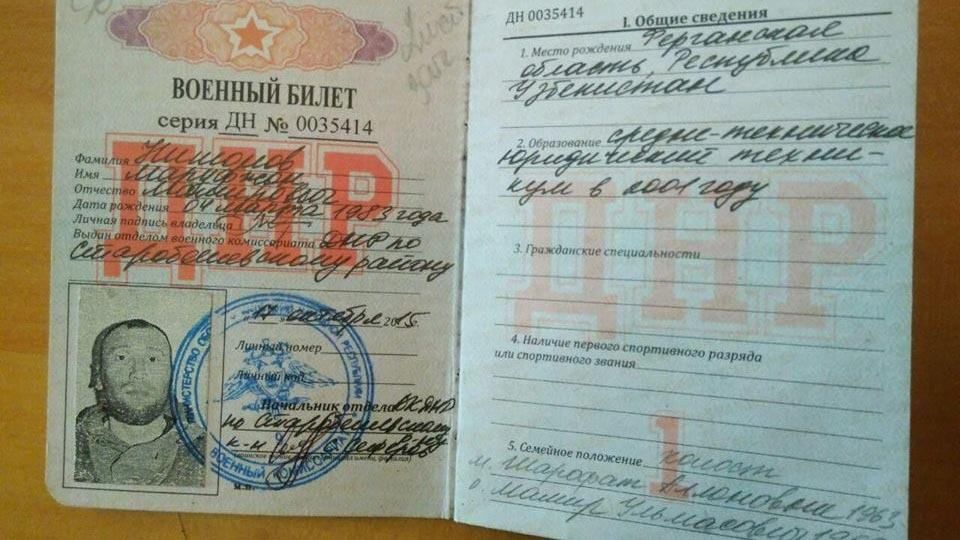 Лист
ВОЕННЫЙ БИЛЕТ
серия ДН № 0035414
ДНР
Фамилия
Имя Маруфжон
Отчество
Дата рождения 04 марта 1983 года
Личная подпись владельца
Выдан отделом военного комиссариата ДНР по
Старобешевскому району
17 октября 2015
Личный номер
Личный код
Начальник отдела ВК ДНР
по Старобешевскому
к-н
ВОЕННЫЙ КОМИССАРИАТ
М.П.
ДН 0035414
I. Общие сведения
1. Место рождения Ферганская
область, Республика
Узбекистан
2. Образование средне-техническое
юридический техни-
кум в 2001 году
ДНР
3. Гражданские специальности
4. Наличие первого спортивного разряда
или спортивного звания
1
5. Семейное положение холост
м. Шарофат 1963
о. Ульмасович